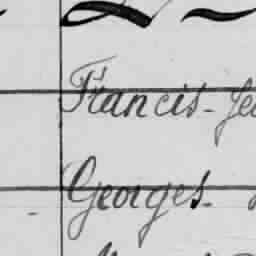 Francis-
Georges-